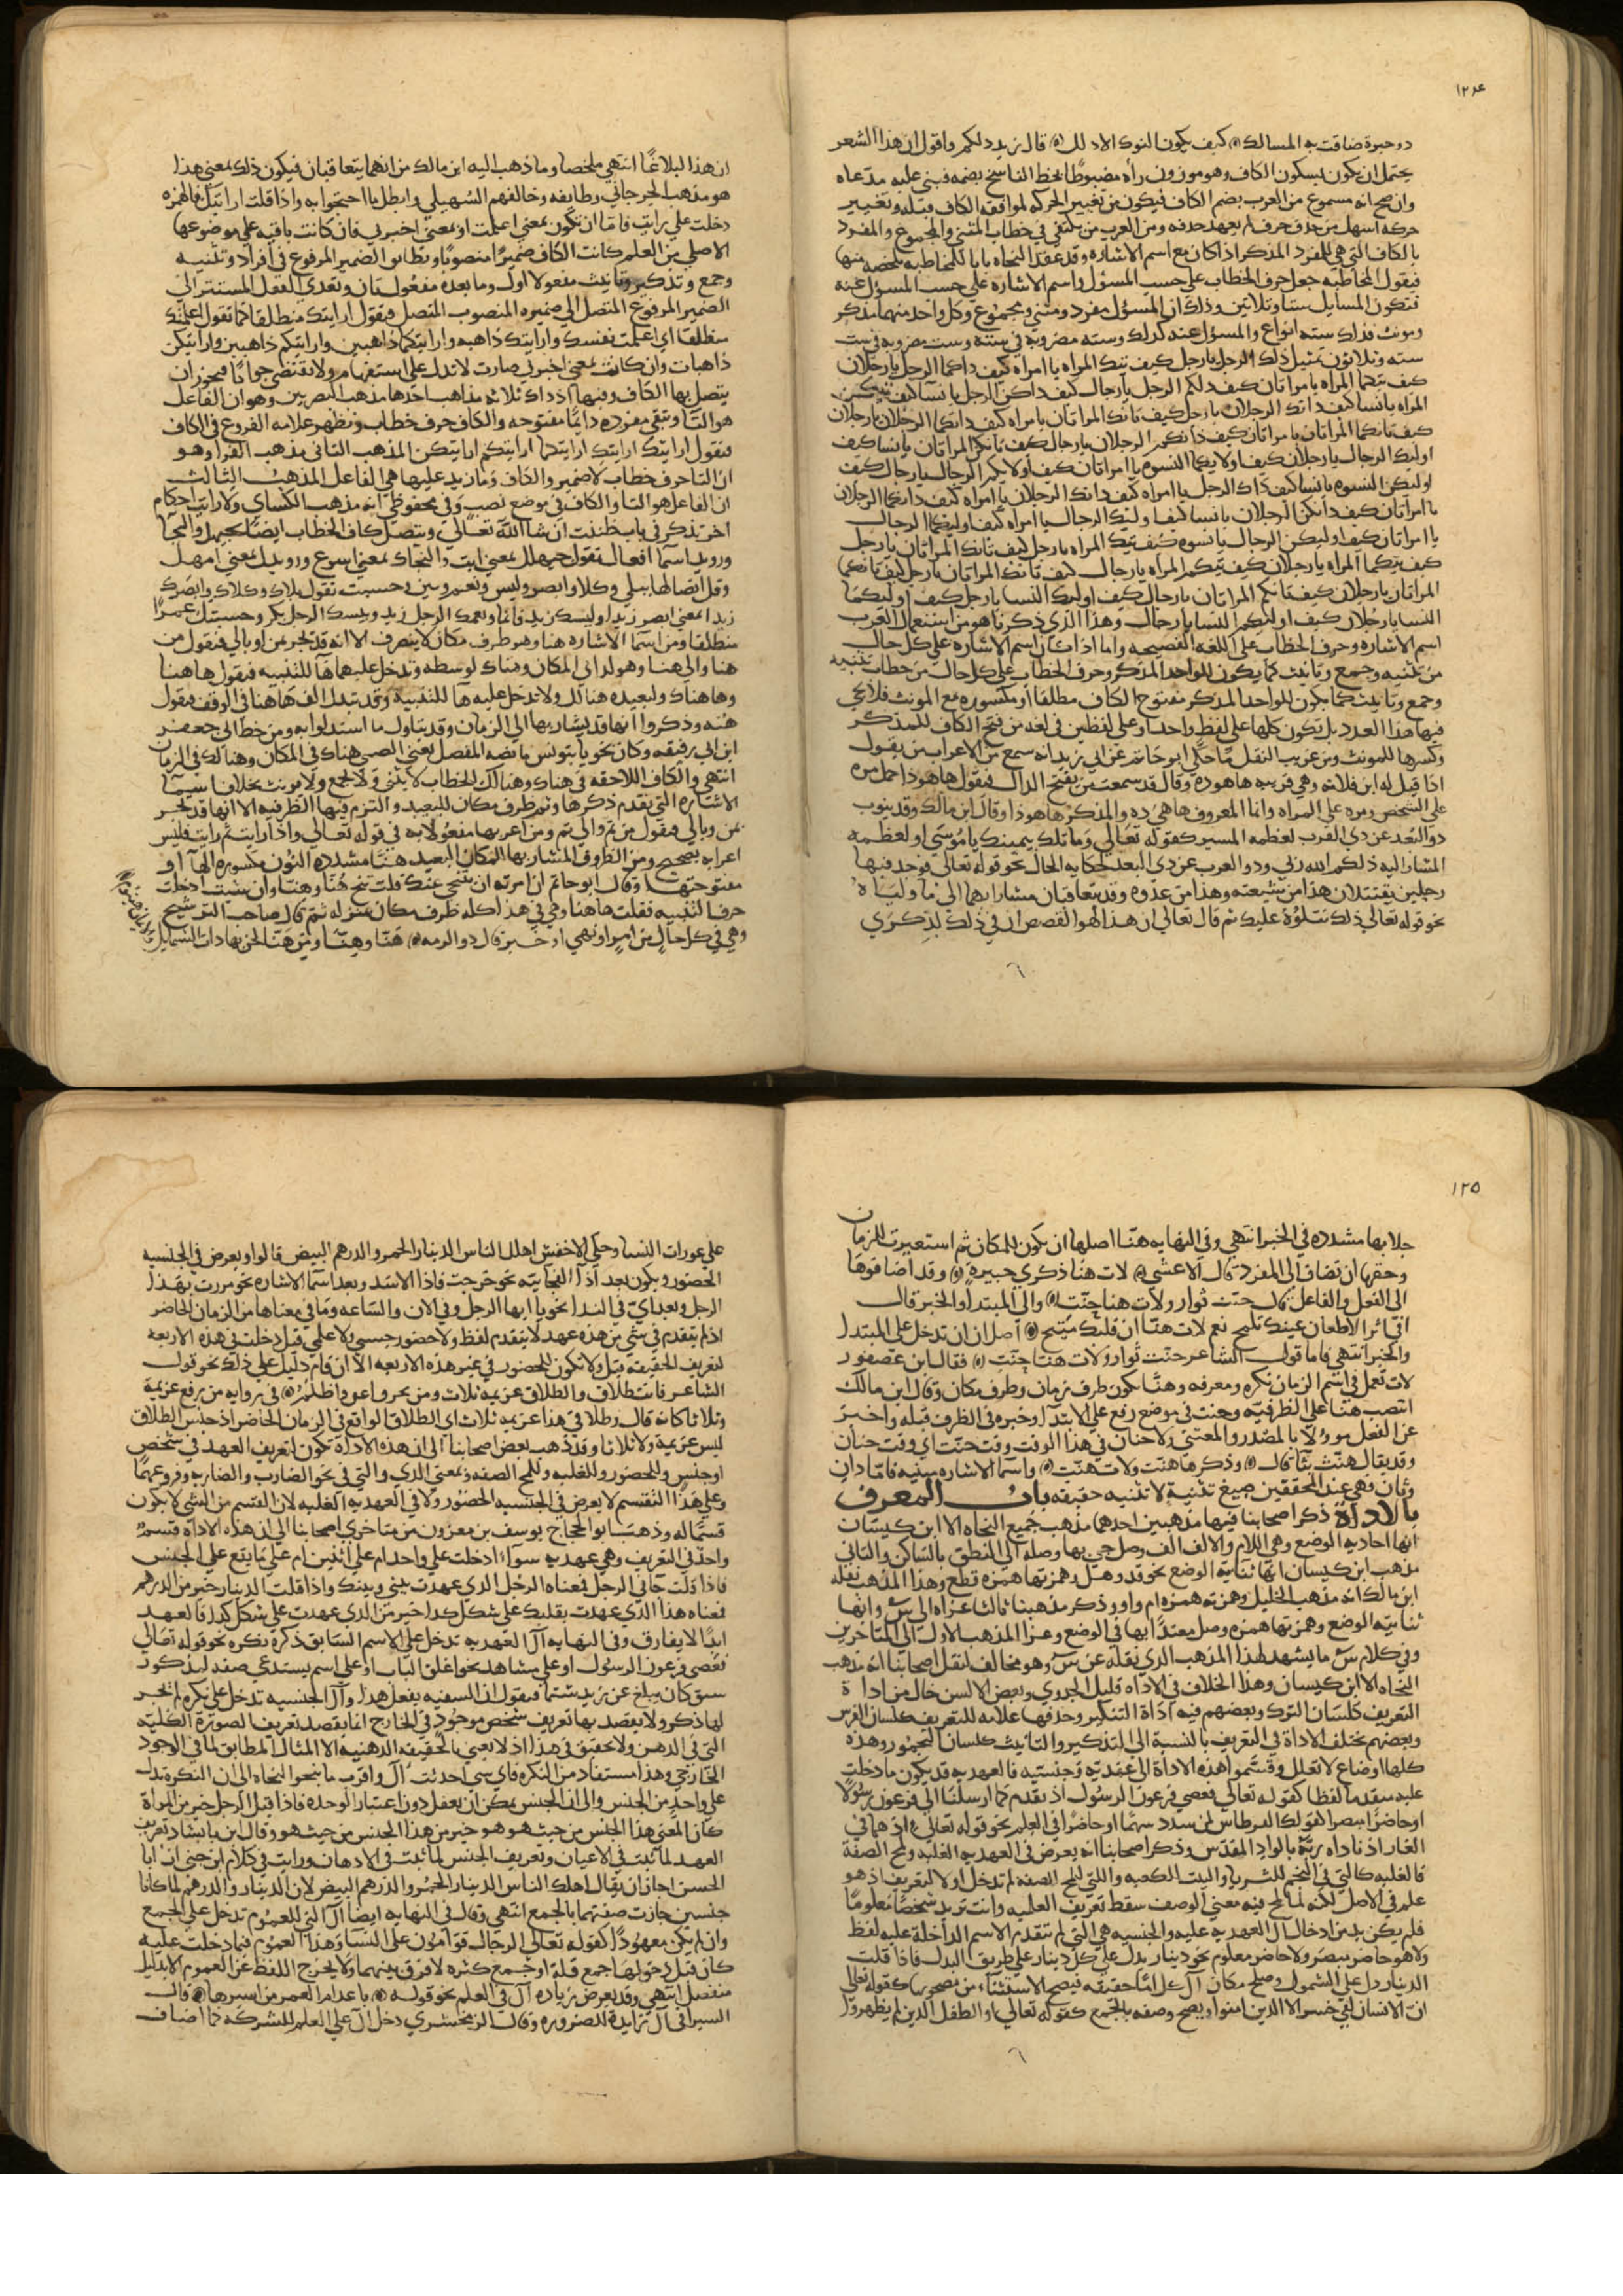 ١٢٤
ذو حيرة ضاقت به المسالك كيف يكون النوك الا ذلك قال يزيد ذلكم واقول ان هذا الشعر
يحتمل ان يكون بسكون الكاف وهو موزون رآه مضبوطا بخط الناسخ بضمه فبنى عليه مدعاه
وان صح انه مسموع من العرب بضم الكاف فيكون من تغيير الحركه لموافقة الكاف قبله وتغيير
حركه اسهل من حذف حرف لم يعهد حذفه ومن العرب من يكتفي في خطاب المثنى والمجموع والمفرد
بالكاف التي هي للمفرد المذكر اذا كان مع اسم الاشاره وقد عقد النحاه بابا للمخاطبه نلخصه منها
فنقول المخاطبه جعل حرف الخطاب على حسب المسؤل واسم الاشاره على حسب المسؤل عنه
فتكون المسايل ستا وثلاثين وذلك ان المسؤل مفرد ومثنى ومجموع وكل واحد منهما مذكر
ومونث فذلك سته انواع والمسؤل عنه كذلك وسته مضروبه في سته وست مضروبه في ست
سته وثلاثون تمثيل ذلك الرجل يا رجل كيف تيك المراه يا امراه كيف ذاكما الرجل يا رجلان
كيف تيكما المراه يا مراتان كيف ذلكم الرجل يا رجال كيف ذاكن الرجل يا نسا كيف تيكن
المراه يا نسا كيف ذانك الرجلان يا رجل كيف تانك المراتان يا مراه كيف ذانكما الرجلان يا رجلان
كيف تانكما المراتان يا مراتان كيف ذانكم الرجلان يا رجال كيف تانكن المراتان يا نسا كيف
اوليك الرجال يا رجلان كيف اولايكما النسوه يا امراتان كيف اولايكم الرجال يا رجال كيف
اوليكن النسوه يا نسا كيف ذاك الرجل يا امراه كيف ذانك الرجلان يا امراه كيف ذانكما الرجلان
يا امراتان كيف ذانكن الرجلان يا نسا كيف اوليك الرجال يا امراه كيف اوليكما الرجال
يا امراتان كيف اوليكن الرجال يا نسوه كيف تيك المراه يا رجل كيف تانك المراتان يا رجل
كيف تيكما المراه يا رجلان كيف تيكم المراه يا رجال كيف تانك المراتان يا رجل كيف تانكما
المراتان يا رجلان كيف تانكم المراتان يا رجال كيف اوليك النسا يا رجل كيف اوليكما
النسا يا رجلان كيف اوليكم النسا يا رجال وهذا الذي ذكرناه من استعمال العرب
اسم الاشاره وحرف الخطاب على اللغه الفصيحه واما اذا كان اسم الاشاره على كل حال
من تثنيه وجمع وتانيث كما يكون للواحد المذكر وحرف الخطاب على كل حال من خطاب تثنيه
وجمع وتانيث كما يكون للواحد المذكر مفتوح الكاف مطلقا او مكسوره مع المونث فلا يجي
فيها هذا العدد بل يكون كلها على لفظ واحد او على لفظين في لغه من فتح الكاف للمذكر
وكسرها للمونث ومن غريب النقل ما حكى ابو حاتم عن ابي زيد انه سمع من الاعراب من يقول
اذا قيل له ابن فلانه وهي قريبه ها هو ذه وقال قد سمعت من يفتح الذال فنقول ها هو ذا حمل مره
على الشخص ومره على المراه وانما المعروف ها هي ذه والمذكر ها هو ذا وقال ابن مالك وقد ينوب
ذو البعد عن ذي القرب لعظمه المسير كقوله تعالى وما تلك بيمينك يا موسى او لعظمه
المشار اليه ذلكم الله ربي وذو القرب عن ذي البعد لحكايه الحال نحو قوله تعالى فوجد فيها
رجلين يقتتلان هذا من شيعته وهذا من عدوه وقد يتعاقبان مشارا بهما الى ما ولياه
نحو قوله تعالى ذلك نتلوه عليك ثم قال تعالى ان هذا لهو القصص ان في ذلك لذكرى
ان هذا لبلاغا انتهى ملخصا وما ذهب اليه ابن مالك من انهما يتعاقبان فيكون ذلك بمعنى هذا
هو مذهب الجرجاني وطايفه وخالفهم السهيلي وابطل ما احتجوا به واذا قلت ارايتك فالهمزه
دخلت على رايت فاما ان تكون بمعنى اعلمت او بمعنى اخبرني فان كانت باقيه على موضوعها
الاصلي من العلم كانت الكاف ضميرا منصوبا ويطابق الضمير المرفوع في افراد وتثنيه
وجمع وتذكير وتانيث مفعولا اول وما بعده مفعول ثان وتعدى الفعل المستتر الى
الضمير المرفوع المتصل الى ضميره المنصوب المتصل فيقول ارايتك منطلقا كما تقول اعلمتك
منطلقا اي اعلمت نفسك وارايتك ذاهبه وارايتكما ذاهبين وارايتكم ذاهبين وارايتكن
ذاهبات وان كانت بمعنى اخبرني صارت لا تدل على استفهام ولا تقتضي جوابا فيجوز ان
يتصل بها الكاف وفيها اذ ذاك ثلاثه مذاهب احدها مذهب البصريين وهو ان الفاعل
هو التا وتبقى مفرده دايما مفتوحه والكاف حرف خطاب وتظهر علامه الفروع في الكاف
فنقول ارايتك ارايتك ارايتكما ارايتكم ارايتكن المذهب الثاني مذهب الفرا وهو
ان التا حرف خطاب لا ضمير والكاف وما زيد عليها هي الفاعل المذهب الثالث
ان الفاعل هو التا والكاف في موضع نصب وفي محفوظي انه مذهب الكساي ولارايت احكام
اخر تذكر في باب ظننت ان شا الله تعالى وتتصل كاف الخطاب ايضا بحيهل والنجا
ورويد اسما افعال تقول حيهلك بمعنى ايت والنجاك بمعنى اسرع ورويدك بمعنى امهل
وقل اتصالها ببلى وكلا وابصر وليس ونعم وبيس وحسبت تقول بلاك وكلاك وابصرك
زيدا بمعنى ابصر زيدا وليسك زيد قايما ونعمك الرجل زيد وبيسك الرجل بكر وحسبتك عمرا
منطلقا ومن اسما الاشاره هنا وهو ظرف مكان لا يتصرف الا انه قد يجر بمن او بالى فنقول من
هنا والى هنا وهو لداني المكان وهناك لوسطه وتدخل عليهما ها للتنبيه فيقول هاهنا
وهاهناك ولبعيده هنالك ولا تدخل عليه ها للتنبيه وقد تبدل الف هاهنا في الوقف فيقول
هنه وذكروا انها قد يشار بها الى الزمان وقد يتاول ما استدلوا به ومن خط ابي جعفر
ابن ابي رفيقه وكان نحويا بتونس ما نصه المفصل يعني الصبي هناك في المكان وهنالك في الزمان
انتهى والكاف اللاحقه في هناك وهنالك للخطاب لا يثنى ولا يجمع ولا مونث بخلاف اسما
الاشاره التي تقدم ذكرها وثم ظرف مكان للبعيد والتزم فيها الظرفيه الا انها قد تجر
بمن وبالى فيقول من ثم والى ثم ومن اعربها مفعولا به في قوله تعالى واذا رايت ثم رايت فليس
اعرابه بصحيح ومن الظروف المشار بها المكان البعيد هنا مشدده النون مكسوره الها او
مفتوحتها وقال ابو حاتم اذا امرته ان يتنحى عنك قلت تنح هنا وهنا وان شيت ادخلت
حرف التنبيه فقلت هاهنا وهي في هذا كله ظرف مكان بمنزله ثم قال صاحب الترشيح
وهي في كل حال من امر او نهي او خبر قال ذو الرمه هنا وهنا ومن هنا لهن بها ذات الشمايل
١٢٥
جلابها مشدده في الخبر انتهى وفي النهايه هنا اصلها ان يكون للمكان ثم استعيرت للزمان
وحقها ان تضاف الى المفرد قال الاعشى لات هنا ذكرى جبيره وقد اضافوها
الى الفعل والفاعل قال حنت نوار ولات هنا حنت والى المبتدا والخبر قال
افي اثر الاظعان عينك تلمح نعم لات هنا ان قلبك متيح اصل ان ان تدخل على المبتدا
والخبر انتهى فاما قول الشاعر حنت نوار ولات هنا حنت فقال ابن عصفور
لات تعمل في اسم الزمان نكره ومعرفه وهنا يكون ظرف زمان وظرف مكان وقال ابن مالك
انتصب هنا على الظرفيه وحنت في موضع رفع على الابتدا وخبره في الظرف قبله واخبر
عن الفعل موولا بالمصدر والمعنى ولا حنان في هذا الوقت وقت حنت اي وقت حنان
وقد يقال هنت بتا قال وذكرها هنت ولات هنت واسما الاشاره مبنيه فاما ذان
وتان فهي عند المحققين صيغ تثنيه لا تثنيه حقيقه باب المعرف
بالاداه ذكر اصحابنا فيها مذهبين احدهما مذهب جميع النحاه الا ابن كيسان
انها احاديه الوضع وهي اللام والالف الف وصل جي بها وصله الى النطق بالساكن والثاني
مذهب ابن كيسان انها ثنايه الوضع نحو قد وهل وهمزتها همزه قطع وهذا المذهب نقله
ابن مالك انه مذهب الخليل وهمزته همزه ام واو وذكر مذهبنا ثالثا عزاه الى س وانها
ثنايه الوضع وهمزتها همزه وصل معتدا بها في الوضع وعزا المذهب الاول الى المتاخرين
وفي كلام س ما يشهد لهذا المذهب الذي نقله عن س وهو مخالف لنقل اصحابنا انه مذهب
النحاه الا ابن كيسان وهذا الخلاف في الاداه قليل الجدوى وبعض الالسن خال من اداه
التعريف كلسان الترك وبعضهم فيه اداه التنكير وحذفها علامه للتعريف كلسان الفرس
وبعضهم يختلف الاداه في التعريف بالنسبه الى التذكير والتانيث كلسان البجمور وهذه
كلها اوضاع لا تعلل وقسموا هذه الاداه الى عهديه وجنسيه فالعهديه قد يكون ما دخلت
عليه متقدما لفظا كقوله تعالى فعصى فرعون الرسول اذ تقدم كما ارسلنا الى فرعون رسولا
او حاضرا مبصرا كقولك القرطاس لمن سدد سهما او حاضرا في العلم نحو قوله تعالى اذ هما في
الغار اذ ناداه ربه بالواد المقدس وذكر اصحابنا انه يعرض في العهديه الغلبه ولمح الصفه
فالغلبه كالتي في النجم للثريا والبيت الكعبه واللتي للمح الصفه لم تدخل اولا للتعريف اذ هو
علم في الاصل لكنه لما لمح فيه معنى الوصف سقط تعريف العلميه وانت تريد شخصا معلوما
فلم يكن بد من ادخال ال العهديه عليه والجنسيه هي التي لم تتقدم الاسم الداخله عليه لفظ
ولا هو حاضر مبصر ولا حاضر معلوم نحو دينار يدل على كل دينار على طريق البدل فاذا قلت
الدينار دل على الشمول وصلح مكان ال كل اما حقيقه فيصح الاستثناء من مصحوبها كقوله تعالى
ان الانسان لفي خسر الا الذين امنوا ويصح وصفه بالجمع كقوله تعالى او الطفل الذين لم يظهروا
على عورات النسا وحكى الاخفش اهلك الناس الدينار الحمر والدرهم البيض قالوا ويعرض في الجنسيه
الحضور ويكون بعد اذا الفجاييه نحو خرجت فاذا الاسد وبعد اسما الاشاره نحو مررت بهذا
الرجل وبعد اي في الندا نحو يا ايها الرجل وفي الان والساعه وما في معناها من الزمان الحاضر
اذ لم يتقدم في شي من هذه عهد لا بتقدم لفظ ولا حضور حسي ولا علمي قبل دخلت في هذه الاربعه
لتعريف الحقيقه قيل ولا تكون للحضور في غير هذه الاربعه الا ان قام دليل على ذلك نحو قول
الشاعر فانت طلاق والطلاق عزيمه ثلاث ومن يخرق اعق واظلم في روايه من يرفع عزيمه
وثلاثا كانه قال وطلاقي هذا عزيمه ثلاث اي الطلاق الواقع في الزمان الحاضر اذ جنس الطلاق
ليس عزيمه ولا ثلاثا وقد ذهب بعض اصحابنا الى ان هذه الاداه تكون لتعريف العهد في شخص
او جنس وللحضور وللغلبه وللمح الصفه وبمعنى الذي والتي في نحو الضارب والضاربه وفروعهما
وعلى هذا التقسيم لا يعرض في الجنسيه الحضور ولا في العهديه الغلبه لان القسم من الشي لا يكون
قسيما له وذهب ابو الحجاج يوسف بن معزوز من متاخري اصحابنا الى ان هذه الاداه قسم
واحد في التعريف وهي عهديه سواء ادخلت على واحد ام على اثنين ام على ما يقع على الجنس
فاذا قلت جاني الرجل فمعناه الرجل الذي عهدت بيني وبينك واذا قلت الدينار خير من الدرهم
فمعناه هذا الذي عهدت بقلبك على شكل كذا خير من الذي عهدت على شكل كذا فالعهد
ابدا لا يفارق وفي النهايه ال العهديه تدخل على الاسم السابق ذكره نكره نحو قوله تعالى
فعصى فرعون الرسول او على مشاهد نحو اغلق الباب او على اسم يستدعي صفه لمذكور
سبق كان يبلغ عن زيد شتما فيقول ان السفيه يفعل هذا وال الجنسيه تدخل على نكره لم يجر
لها ذكر ولا يقصد بها تعريف شخص موجود في الخارج انما يقصد تعريف الصوره الكليه
التي في الذهن ولا تحقق في هذا اذ لا يعنى بالحقيقه الذهنيه الا المثال المطابق لما في الوجود
الخارجي وهذا مستفاد من النكره فاي شي احدثت ال واقرب ما ينتحوا النحاه الى ان النكره تدل
على واحد من الجنس والى ان الجنس يمكن ان يعقل دون اعتبار الوحده فاذا قيل الرجل خير من المراه
كان المعنى هذا الجنس من حيث هو هو خير من هذا الجنس من حيث هو وقال ابن بابشاذ تعريف
العهد لما ثبت في الاعيان وتعريف الجنس لما ثبت في الاذهان ورايت في كلام ابن جني ان ابا
الحسن اجاز ان يقال اهلك الناس الدينار الحمر والدرهم البيض لان الدينار والدرهم لما كانا
جنسين جازت صفتهما بالجمع انتهى وقال في النهايه ايضا ال التي للعموم تدخل على الجمع
وان لم يكن معهودا كقوله تعالى الرجال قوامون على النساء وهذا العموم فيما دخلت عليه
كان قبل دخولها جمع قله او جمع كثره لا فرق بينهما ولا يخرج اللفظ عن العموم الا بدليل
منفصل انتهى وقد يعرض زياده ال في العلم نحو قوله باعد ام العمر من اسيرها قال
السيرافي ال زايده للضروره وقال الزمخشري دخل ال على العلم للشركه كما اضاف